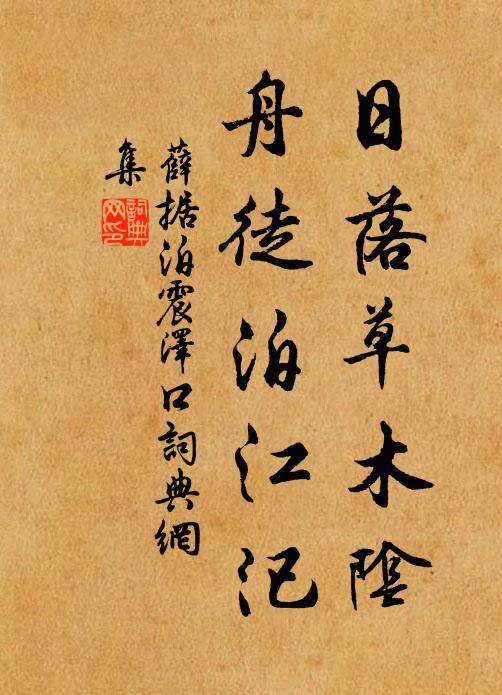 日落草木陰
舟徒泊江汜
薛据泊震澤口詞典網
集
詞典
网印